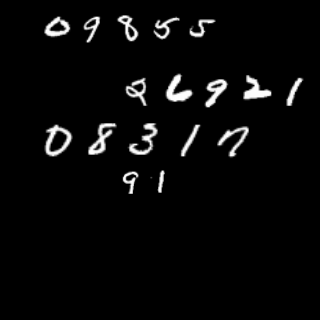 09855
26921
08317
91